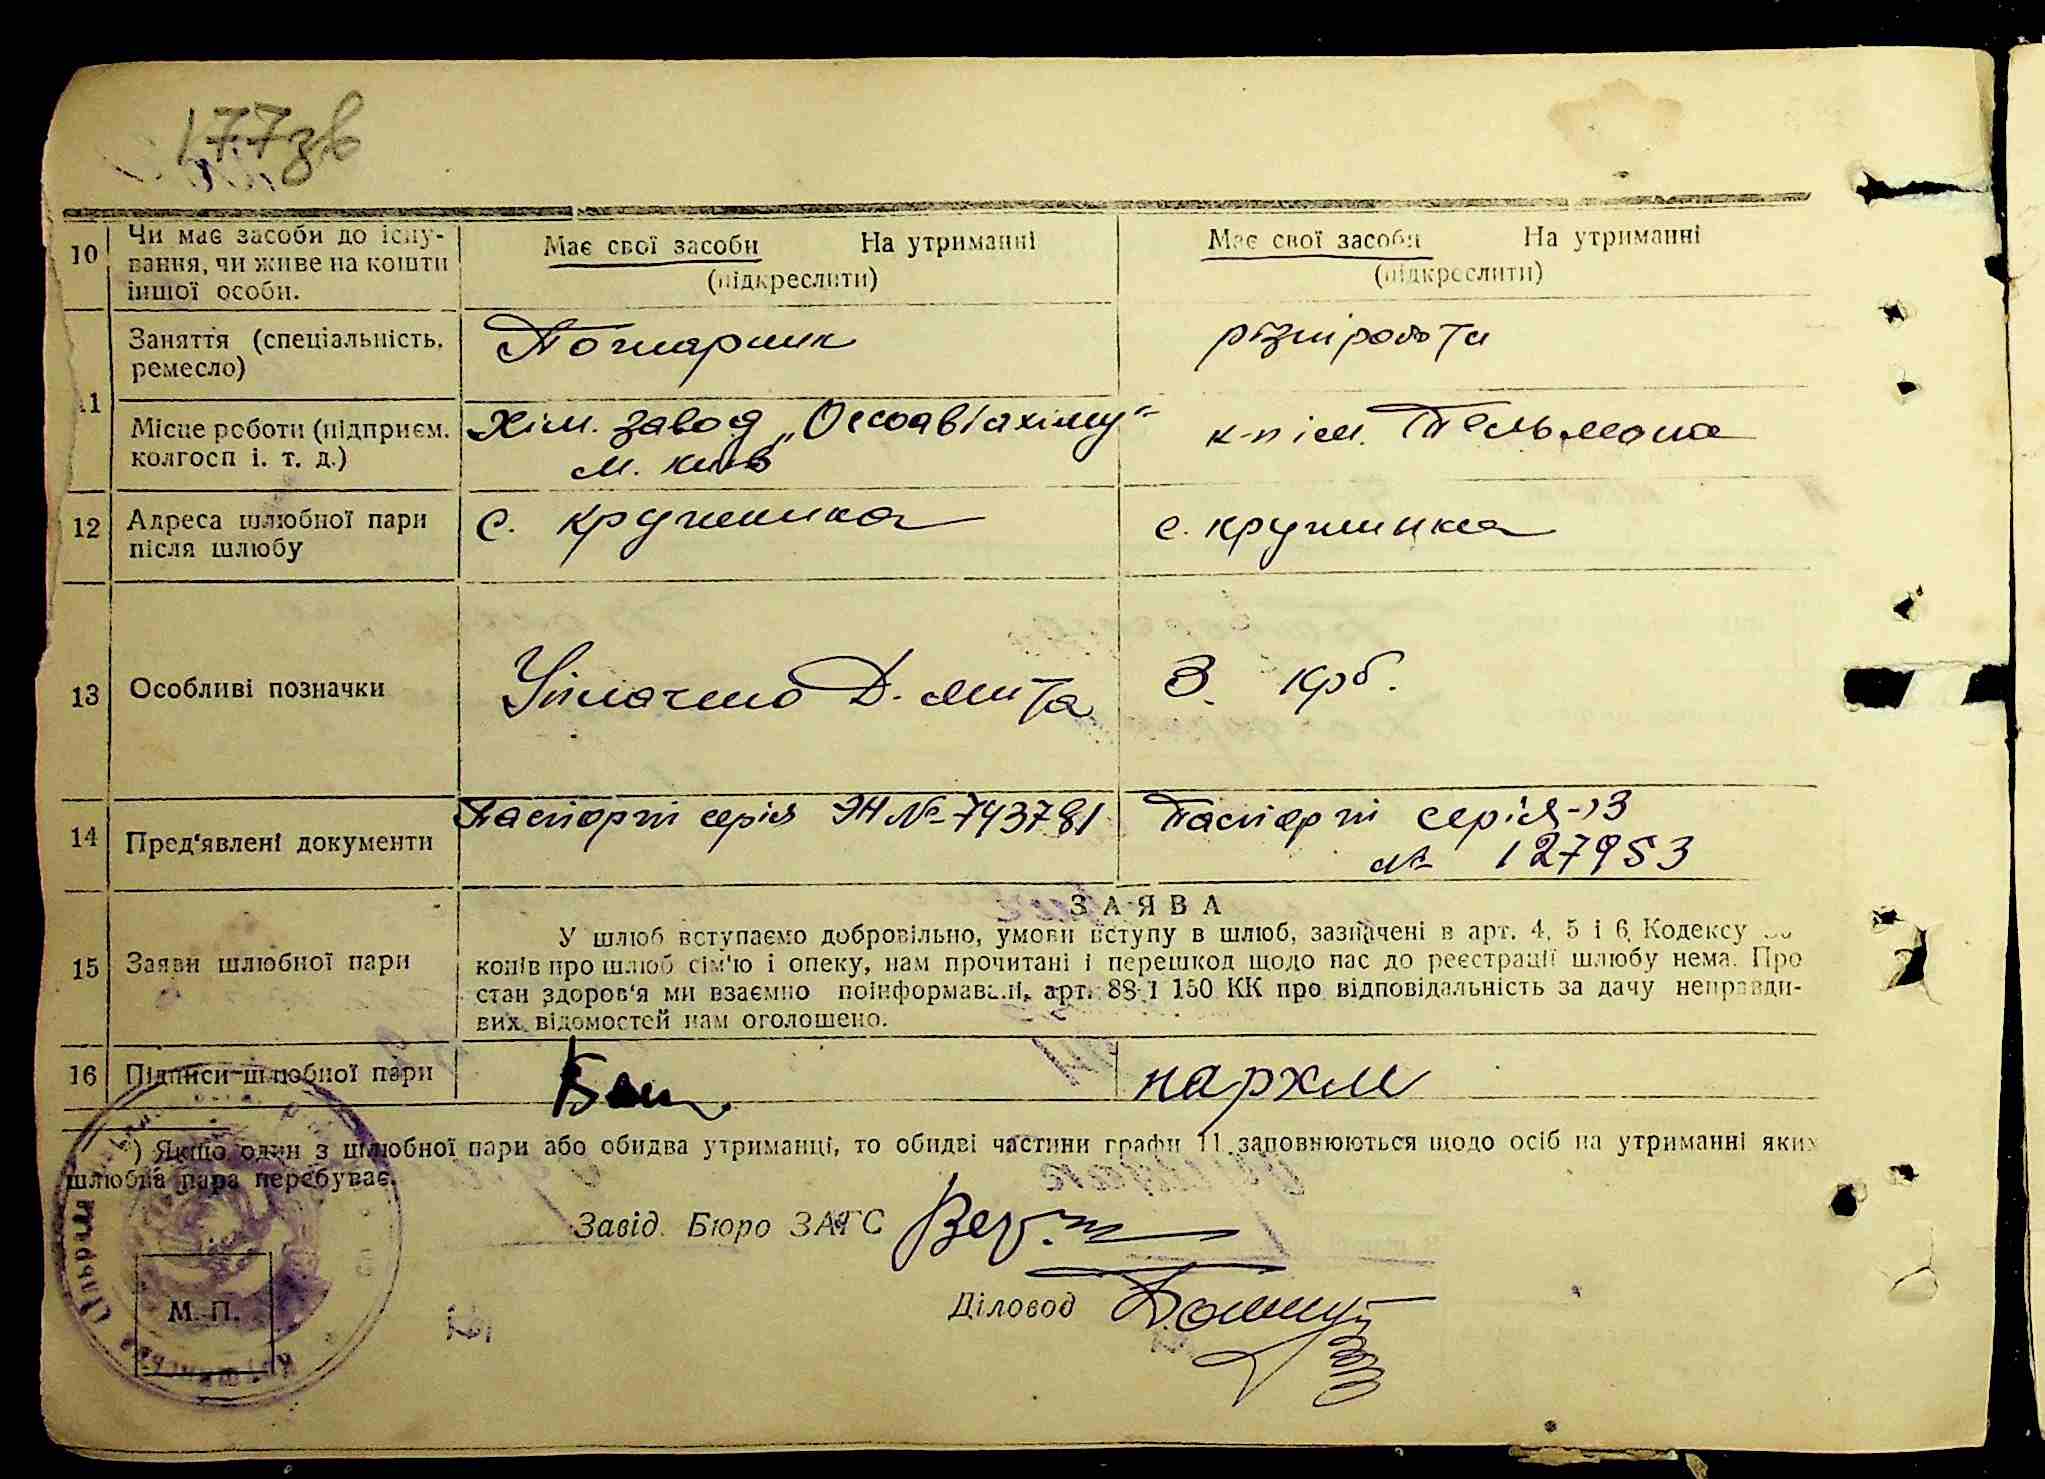 177зв
10 Чи має засоби до існу-
вання, чи живе на кошти
іншої особи.
Має свої засоби На утриманні
(підкреслити)
Має свої засоби На утриманні
(підкреслити)
11 Заняття (спеціальність,
ремесло)
Пожарник
різнiробота
Місце роботи (підприєм.
колгосп і. т. д.)
Хім. завод „Осоавіахіму"
м. Київ
к-п ім. Тельмана
12 Адреса шлюбної пари
після шлюбу
с. Кружинка
с. Кружинка
13 Особливі позначки
Уплачено Д. мита
3. крб.
14 Пред'явлені документи
Паспорт серія ЭН № 743781
Паспорт серія-
№ 127953
ЗАЯВА
15 Заяви шлюбної пари
У шлюб вступаємо добровільно, умови вступу в шлюб, зазначені в арт. 4, 5 і 6 Кодексу за-
конів про шлюб сім'ю і опеку, нам прочитані і перешкод щодо нас до реєстрації шлюбу нема. Про
стан здоров'я ми взаємно поінформавані, арт. 88-1 150 КК про відповідальність за дачу неправди-
вих відомостей нам оголошено.
16 Підписи шлюбної пари
Бон
пархм
) Якщо один з шлюбної пари або обидва утриманці, то обидві частини графи 11 заповнюються щодо осіб на утриманні яких
шлюбна пара перебуває.
Завід. Бюро ЗАГС
Діловод
М. П.